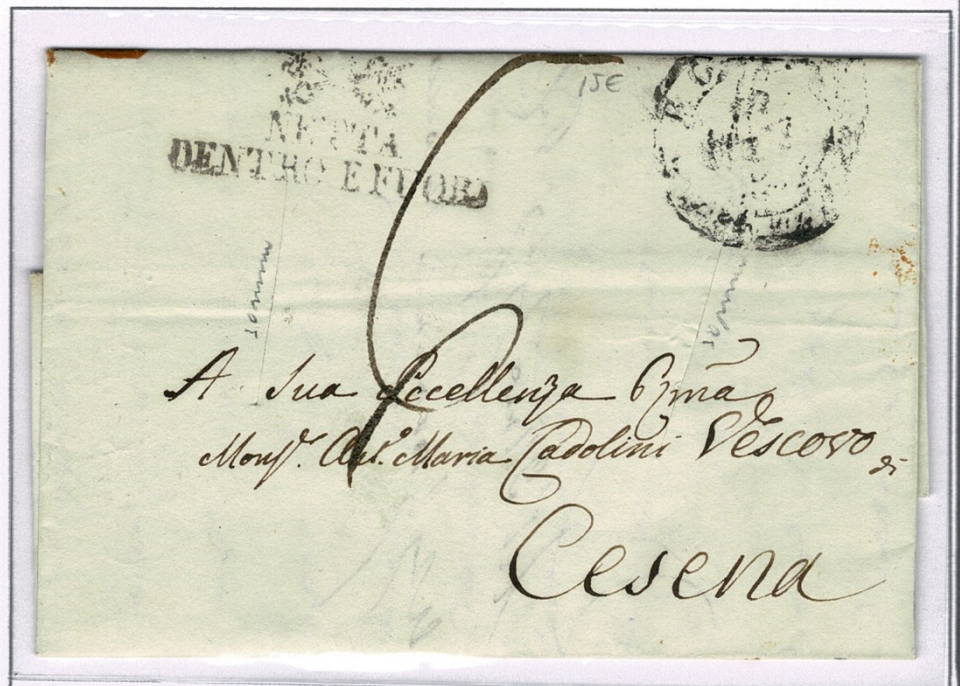 15€
NETTA
DENTRO E FUORI
A Sua Eccellenza Rma
Monsr. Ant. Maria Cadolini Vescovo di
Cesena